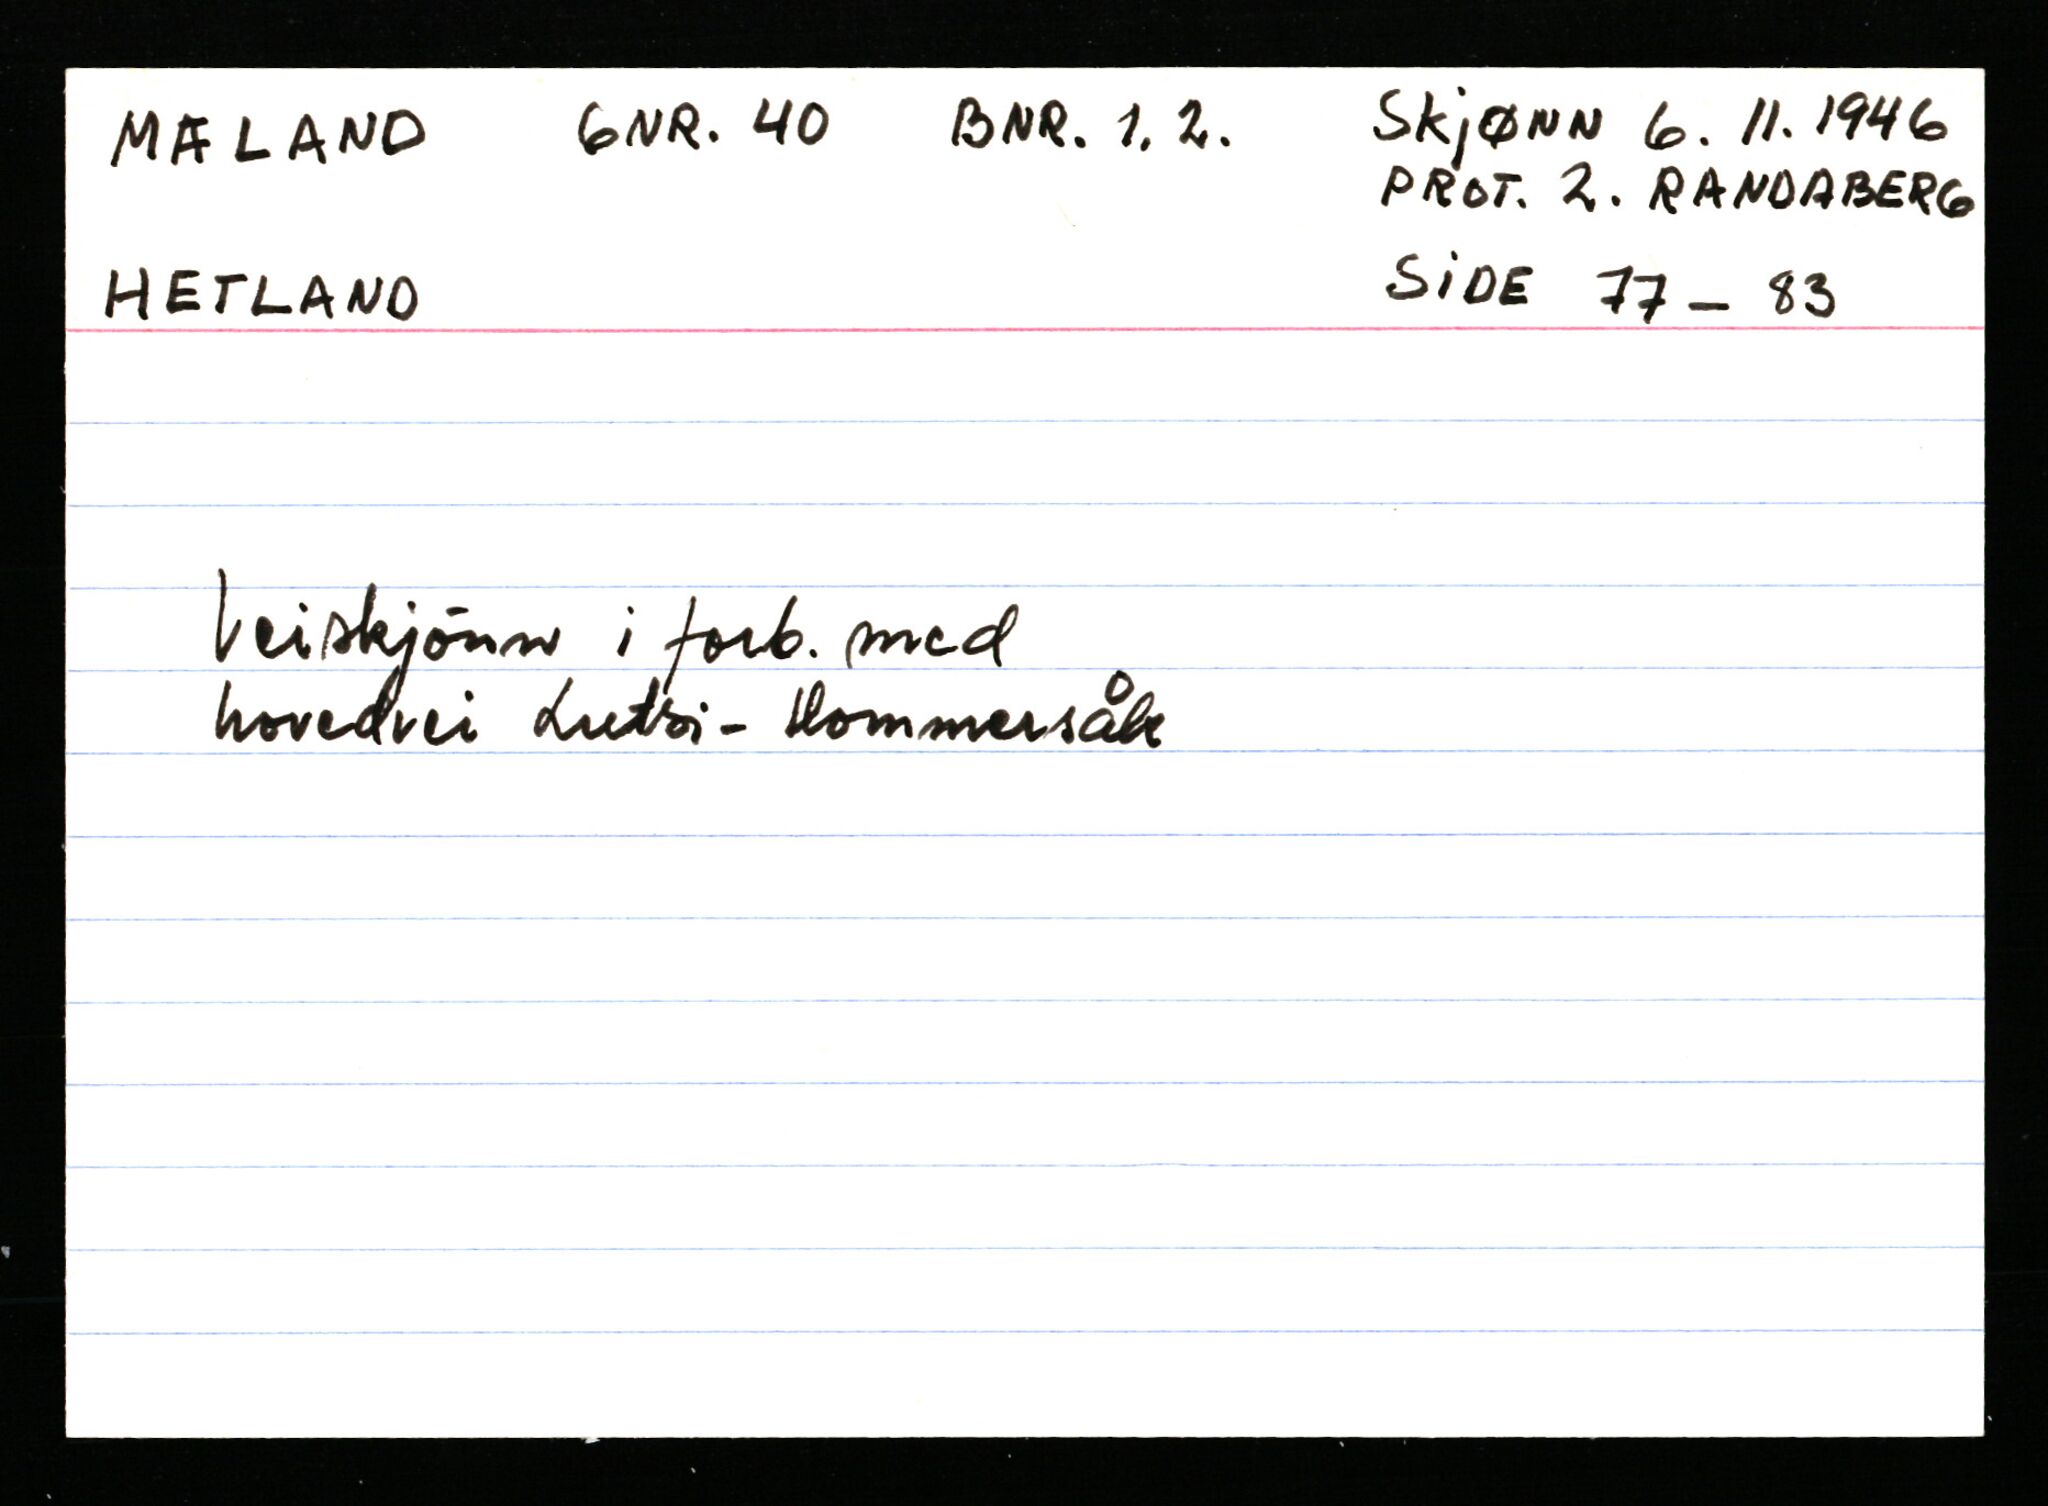 MÆLAND GNR. 40 BNR. 1, 2. SkjØNN 6. 11. 1946
PROT. 2. RANDABERG
HETLAND SiDE 77 – 83
Veiskjōnn i forb. med
hovedvei Lutsi - Hommersåk